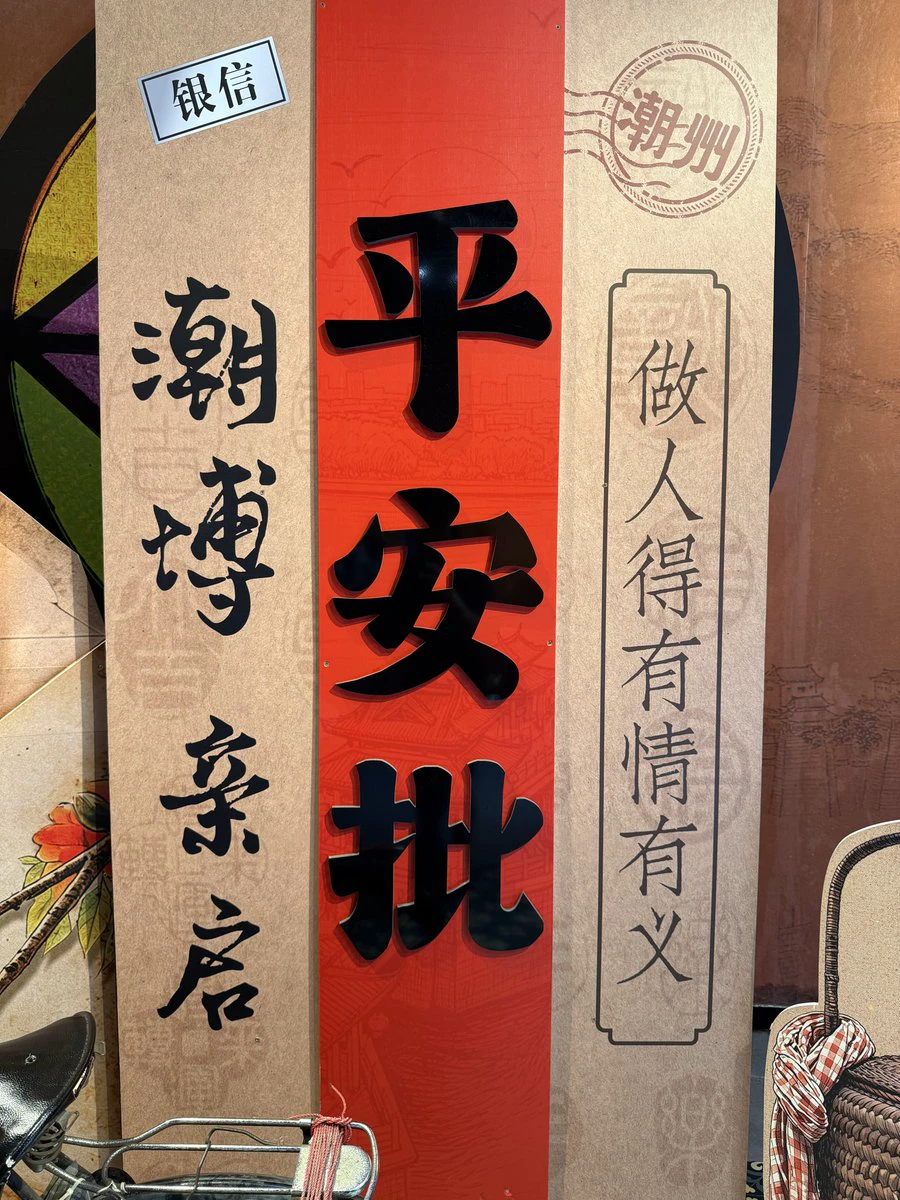 潮州
做人得有情有义
平安批
银信
潮博 亲启